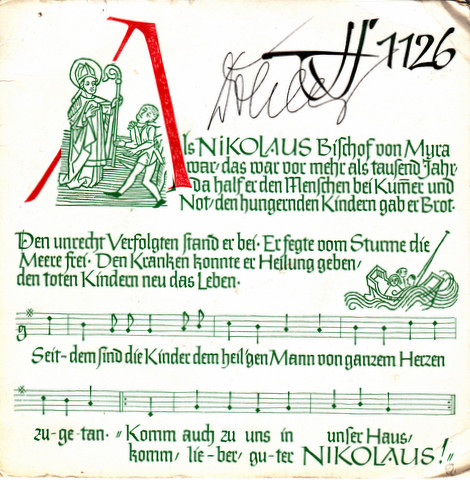 H 1126
Als NIKOLAUS Bischof von Myra
war, das war vor mehr als tausend Jahr,
da half er den Menschen bei Kum̄er und
Not, den hungernden Kindern gab er Brot.
Den unrecht Verfolgten stand er bei. Er fegte vom Sturme die
Meere frei. Den Kranken konnte er Heilung geben,
den toten Kindern neu das Leben.
Seit-dem sind die Kinder dem heil'gen Mann von ganzem Herzen
zu-ge-tan. „Komm auch zu uns in unser Haus,
komm, lie-ber, gu-ter NIKOLAUS!"